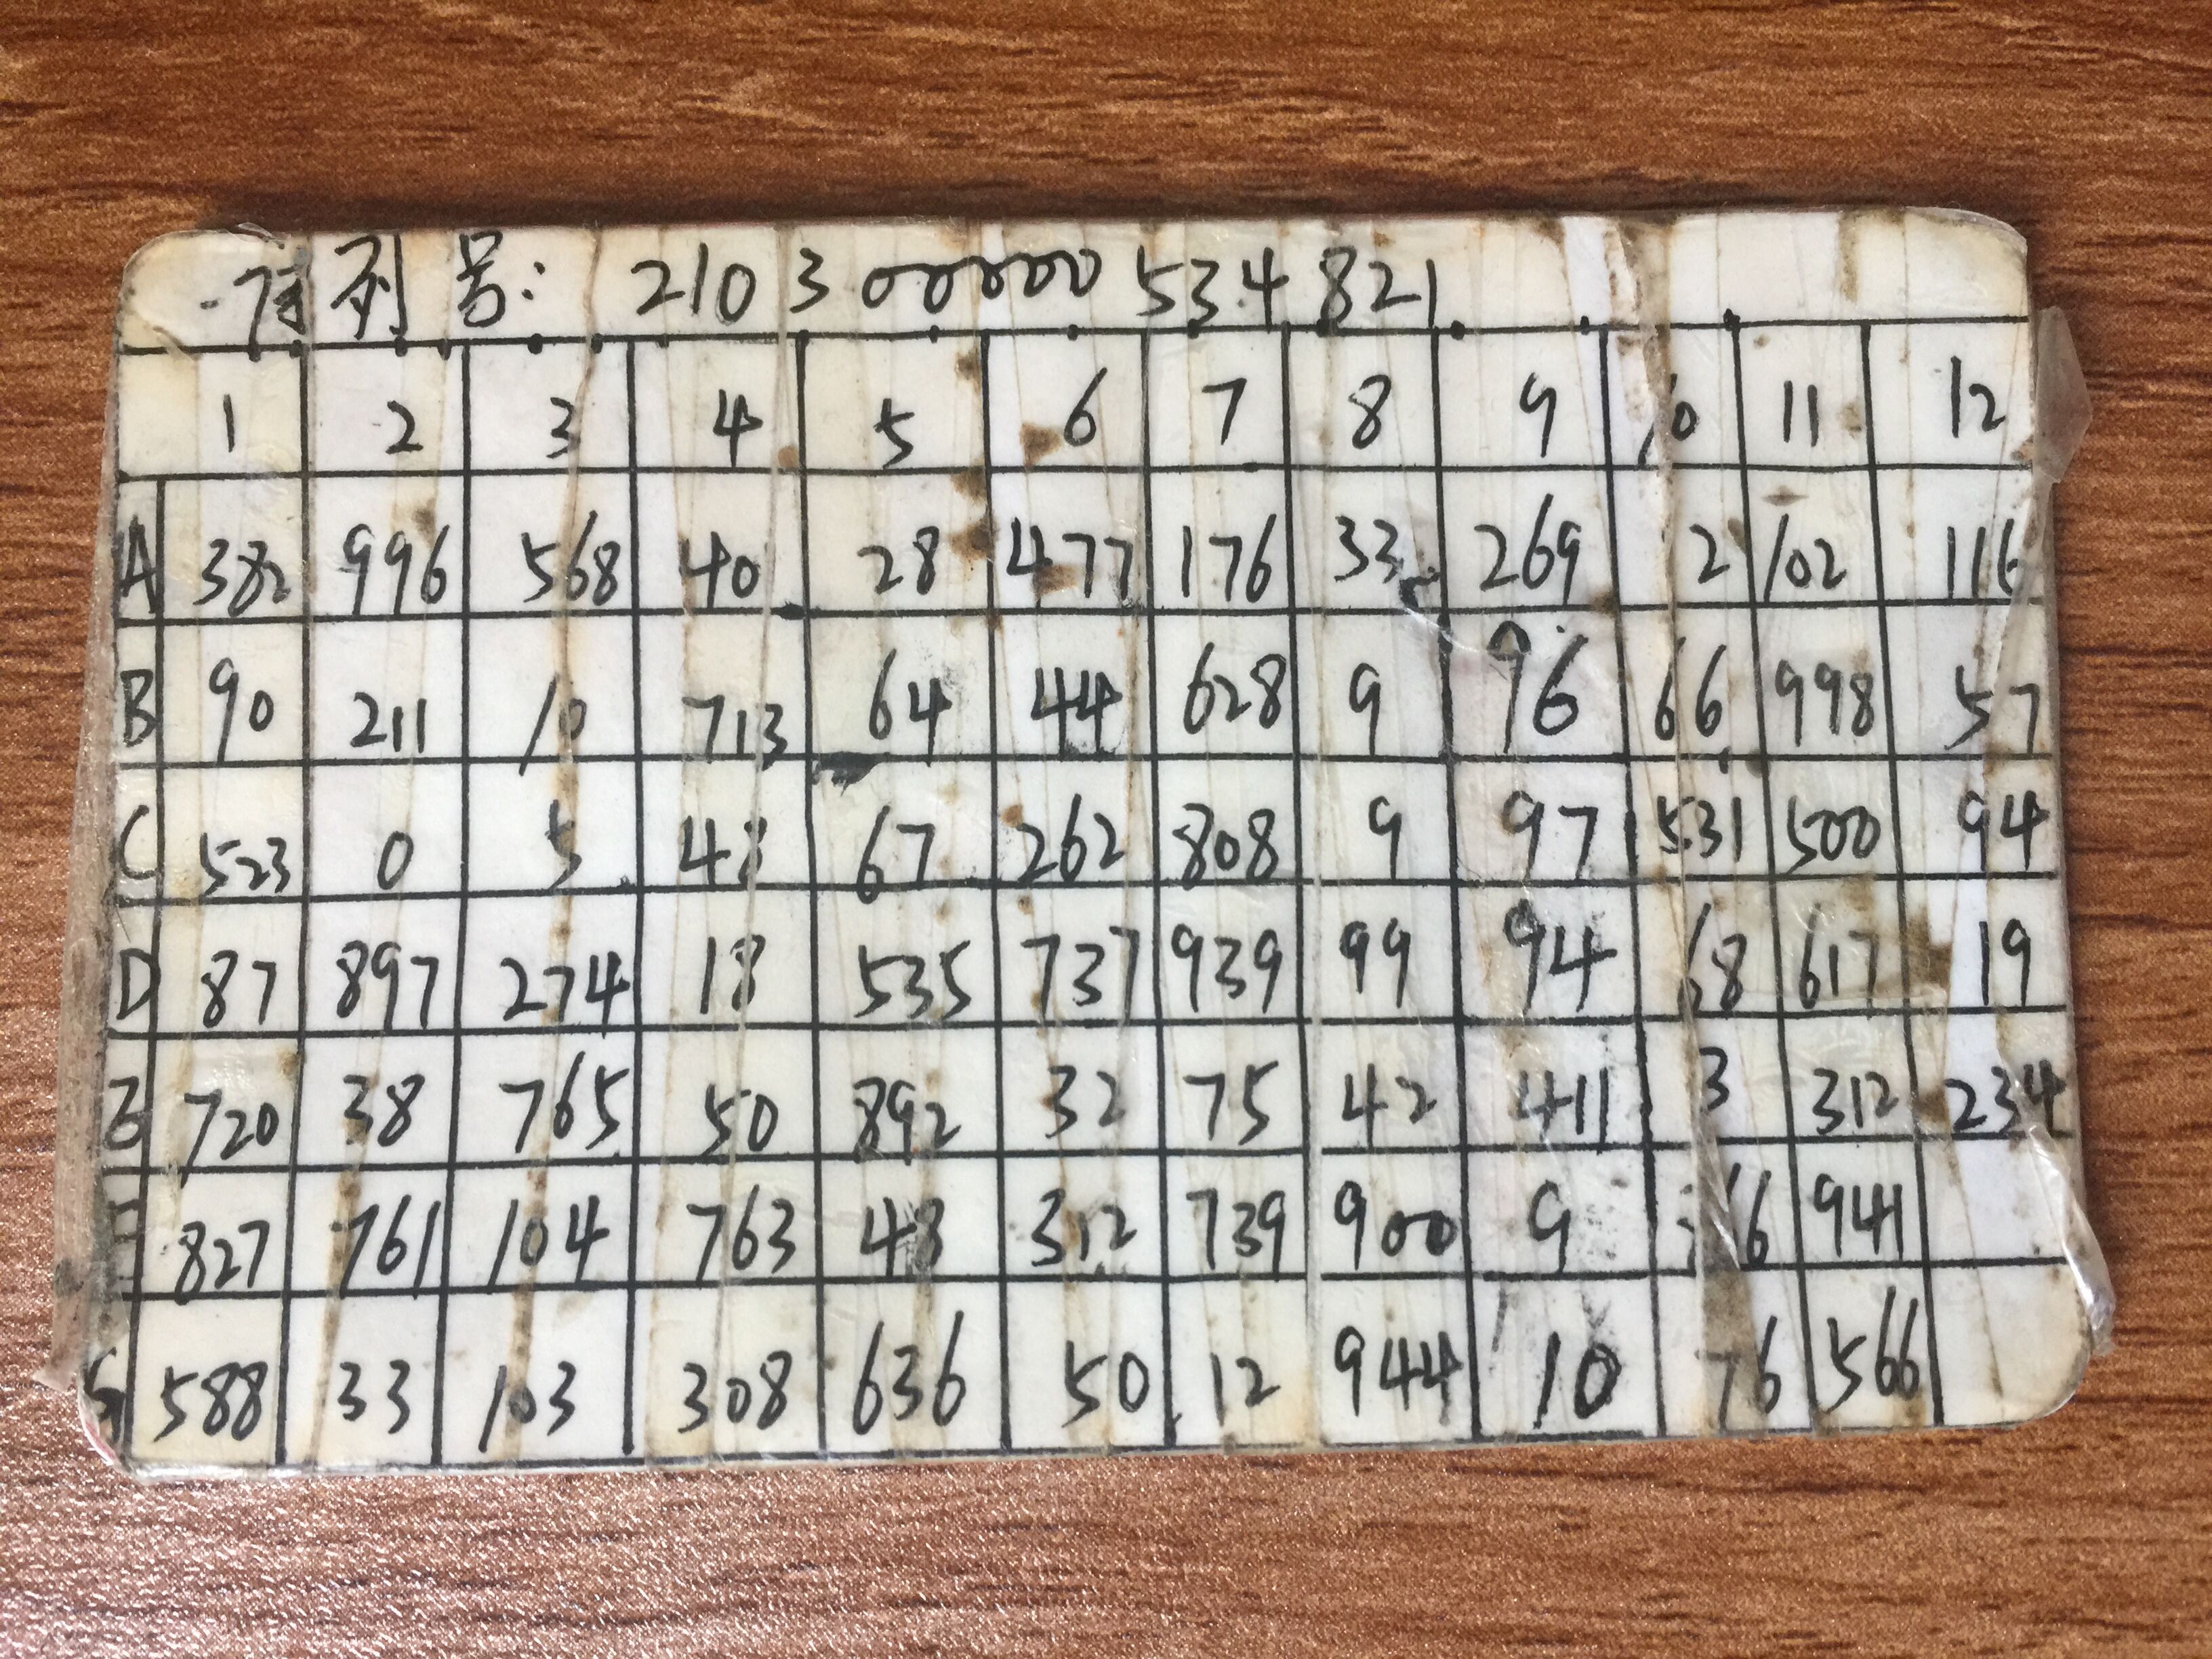 序列号: 210300000534821
1 2 3 4 5 6 7 8 9 10 11 12
A 382 996 568 40 28 477 176 33 269 2 102 116
B 90 211 10 713 64 44 628 9 96 66 998 57
C 523 0 5 48 67 262 808 9 97 531 500 94
D 87 897 274 18 535 737 939 99 94 68 617 19
E 720 38 765 50 892 32 75 42 411 3 312 234
F 827 761 104 763 48 312 739 900 9 941
588 33 103 308 636 50 12 944 10 76 566